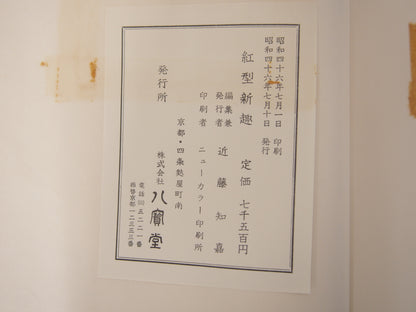 昭和四十六年七月一日 印刷
昭和四十六年七月十日 発行
紅型新趣 定価 七千五百円
編集兼
発行者 近藤知嘉
印刷者 ニューカラー印刷所
京都・四条麩屋町南
発行所 株式会社 八寳堂
電話 五二二一番
振替京都一二三五三番